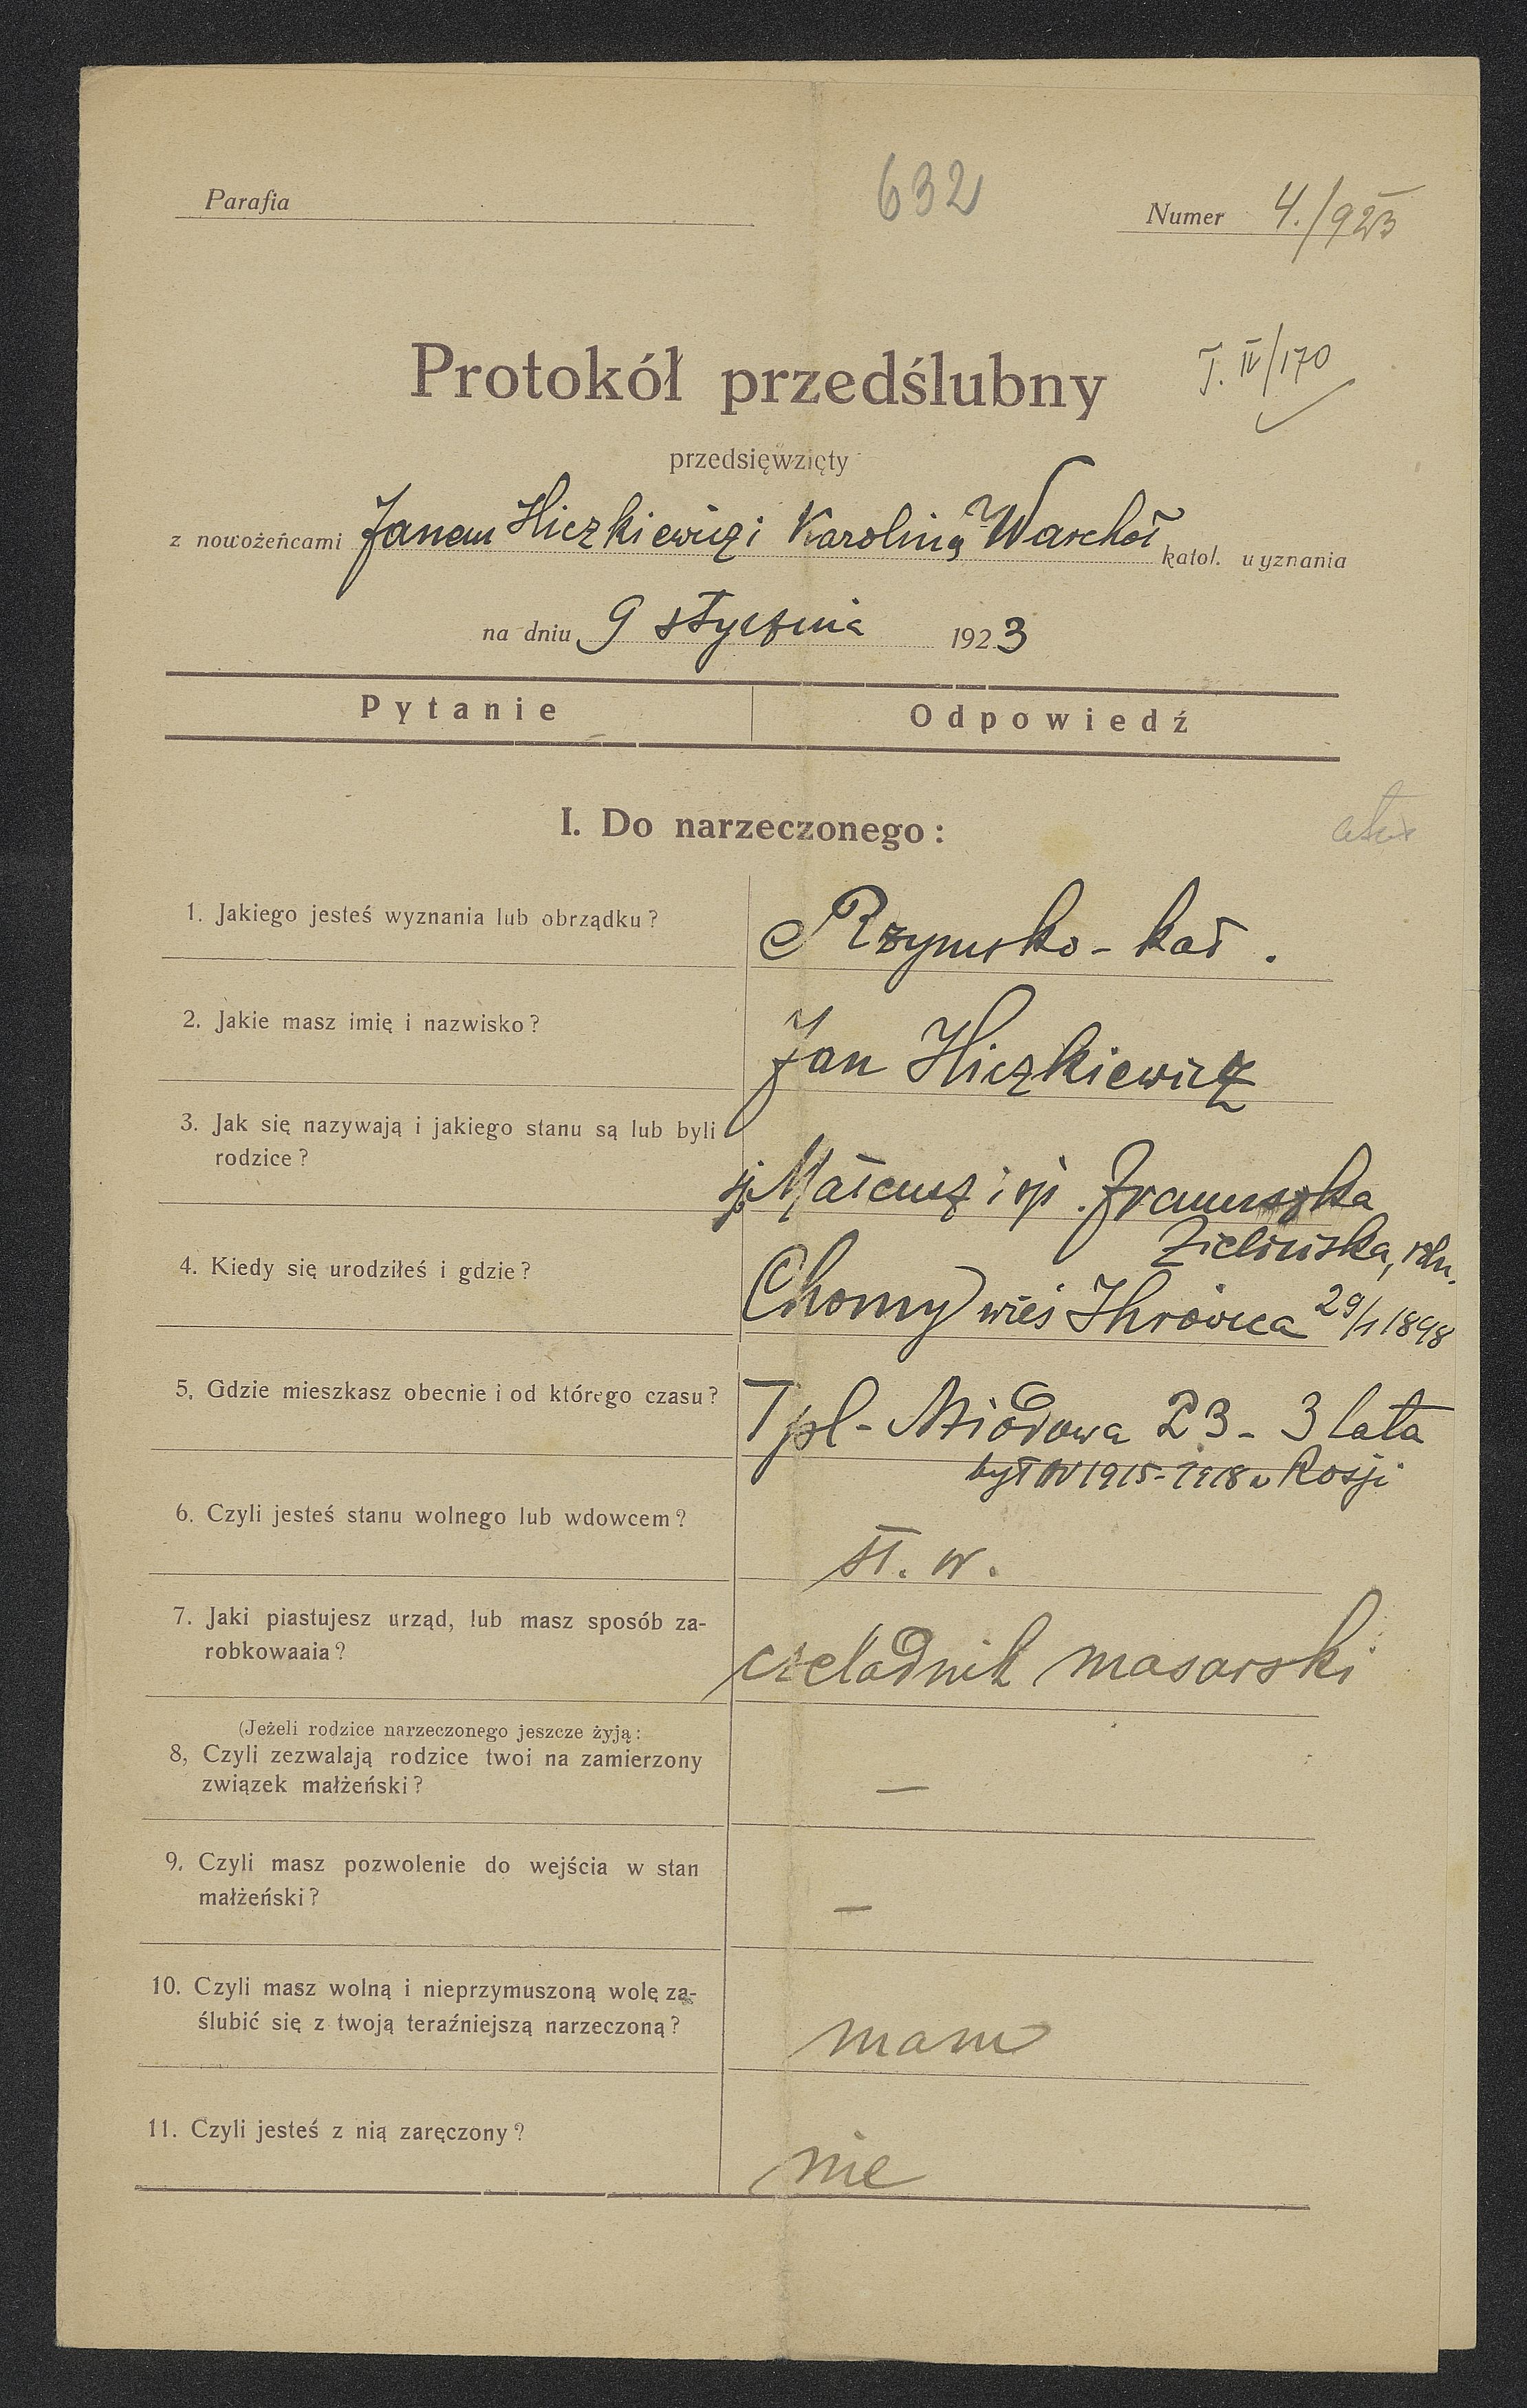 632
Parafia
Numer 4./923
Protokół przedślubny
T. IV/170
przedsięwzięty
z nowożeńcami Janem Hiczkiewicz i Karoliną Warchoł katol. wyznania
na dniu 9 stycznia 1923
Pytanie Odpowiedź
I. Do narzeczonego:
1. Jakiego jesteś wyznania lub obrządku? Rzymsko-kat.
2. Jakie masz imię i nazwisko? Jan Hiczkiewicz
3. Jak się nazywają i jakiego stanu są lub byli
rodzice? śp Mateusz i śp. Franciszka
Zielińska, roln.
4. Kiedy się urodziłeś i gdzie? Chomy wieś Ihrowica 29/1 1898
5. Gdzie mieszkasz obecnie i od którego czasu? Tpl-Miodowa 23 - 3 lata
był w 1915-1918 w Rosji
6. Czyli jesteś stanu wolnego lub wdowcem? st. w.
7. Jaki piastujesz urząd, lub masz sposób za-
robkowaaia? czeladnik masarski
(Jeżeli rodzice narzeczonego jeszcze żyją:
8, Czyli zezwalają rodzice twoi na zamierzony
związek małżeński? —
9. Czyli masz pozwolenie do wejścia w stan
małżeński? —
10. Czyli masz wolną i nieprzymuszoną wolę za-
ślubić się z twoją teraźniejszą narzeczoną? mam
11. Czyli jesteś z nią zaręczony? nie